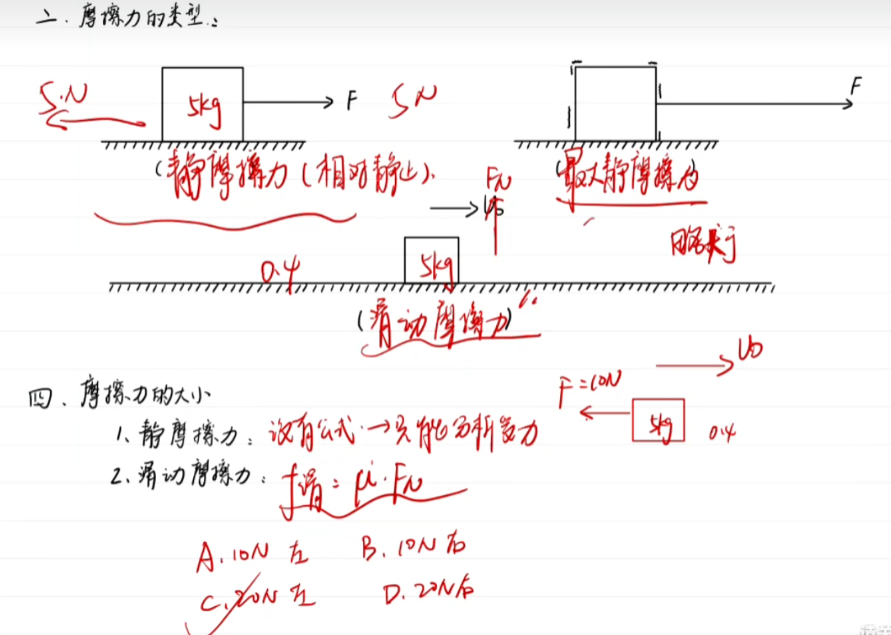 二.摩擦力的类型:
5N 5kg F 5N F
(静摩擦力(相对静止). (最大静摩擦力)
FN
υ₀
略大于
0.4 5kg
(滑动摩擦力)
υ₀
F=10N
5kg 0.4
四、摩擦力的大小
1、静摩擦力: 没有公式→只能分析受力
2、滑动摩擦力: f滑=μ·FN
A.10N 左 B.10N右
C.20N左 D.20N右